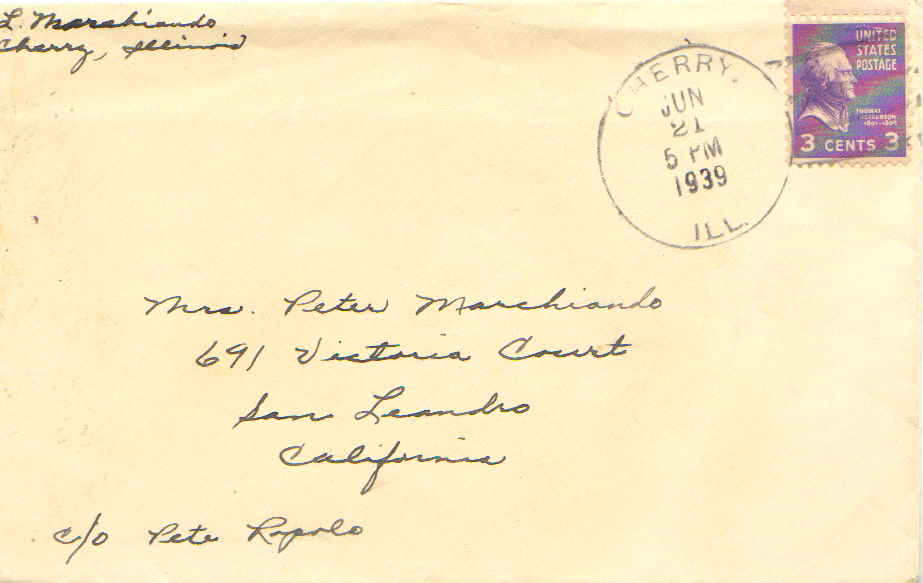 L. Marchiando
Cherry, Illinois
CHERRY,
JUN
21
5 PM
1939
ILL.
UNITED
STATES
POSTAGE
THOMAS
JEFFERSON
1801-1809
3 CENTS 3
Mrs. Peter Marchiando
691 Victoria Court
San Leandro
California
c/o Pete Ropolo